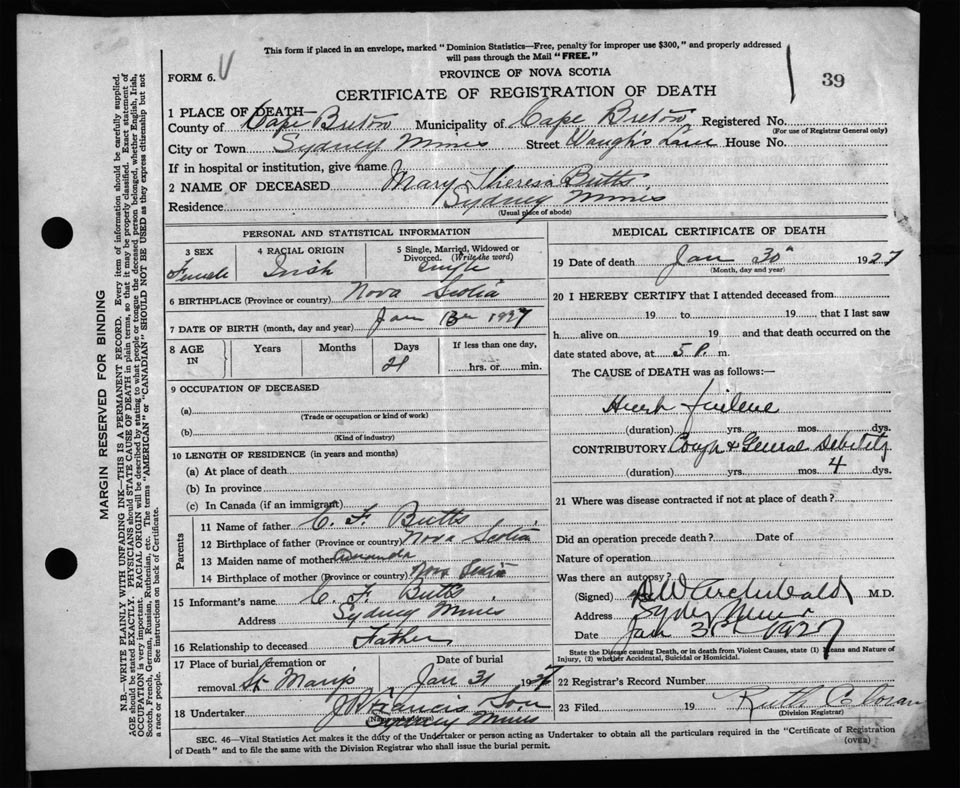 This form if placed in an envelope, marked "Dominion Statistics—Free, penalty for improper use $300," and properly addressed
will pass through the Mail "FREE."
FORM 6.
PROVINCE OF NOVA SCOTIA
39
CERTIFICATE OF REGISTRATION OF DEATH
1 PLACE OF DEATH—
County of Cape Breton Municipality of Cape Breton Registered No.
(For use of Registrar General only)
City or Town Sydney Mines Street Waugh's Lane House No.
If in hospital or institution, give name
2 NAME OF DECEASED Mary Theresa Butts
Residence Sydney Mines
(Usual place of abode)
PERSONAL AND STATISTICAL INFORMATION
3 SEX 4 RACIAL ORIGIN 5 Single, Married, Widowed or
Divorced. (Write the word)
Female Irish Single
6 BIRTHPLACE (Province or country) Nova Scotia
7 DATE OF BIRTH (month, day and year) Jan 1927
8 AGE IN Years Months Days If less than one day,
21 hrs. or min.
9 OCCUPATION OF DECEASED
(a)
(Trade or occupation or kind of work)
(b)
(Kind of industry)
10 LENGTH OF RESIDENCE (in years and months)
(a) At place of death
(b) In province
(c) In Canada (if an immigrant)
Parents
11 Name of father C. F. Butts
12 Birthplace of father (Province or country) Nova Scotia
13 Maiden name of mother Amanda
14 Birthplace of mother (Province or country) Nova Scotia
15 Informant's name C. F. Butts
Address Sydney Mines
16 Relationship to deceased Father
17 Place of burial, cremation or Date of burial
removal St Mary's Jan 31 1927
18 Undertaker J B Francis Son
(Name and address)
Sydney Mines
MEDICAL CERTIFICATE OF DEATH
19 Date of death Jan 30 1927
(Month, day and year)
20 I HEREBY CERTIFY that I attended deceased from
19 to 19 , that I last saw
h alive on 19 and that death occurred on the
date stated above, at 5 P. m.
The CAUSE of DEATH was as follows:—
Heart failure
(duration) yrs. mos. dys.
CONTRIBUTORY Cough & General Debility
(duration) yrs. mos. 4 dys.
21 Where was disease contracted if not at place of death?
Did an operation precede death? Date of
Nature of operation
Was there an autopsy?
(Signed) Archibald M.D.
Address Sydney Mines
Date Jan 31st 1927
State the Disease causing Death, or in death from Violent Causes, state (1) Means and Nature of
Injury, (2) whether Accidental, Suicidal or Homicidal.
22 Registrar's Record Number
23 Filed 19 Ruth C.
(Division Registrar)
SEC. 46—Vital Statistics Act makes it the duty of the Undertaker or person acting as Undertaker to obtain all the particulars required in the "Certificate of Registration
of Death" and to file the same with the Division Registrar who shall issue the burial permit.
(OVER)
MARGIN RESERVED FOR BINDING
N.B.—WRITE PLAINLY WITH UNFADING INK—THIS IS A PERMANENT RECORD. Every item of information should be carefully supplied.
AGE should be stated EXACTLY. PHYSICIANS should STATE CAUSE OF DEATH in plain terms, so that it may be properly classified. Exact statement of
OCCUPATION is very important. RACIAL ORIGIN will be described by stating to what people or tongue the deceased person belonged, whether English, Irish,
Scotch, French, German, Russian, Ruthenian, etc. The terms "AMERICAN" or "CANADIAN" SHOULD NOT BE USED as they express citizenship but not
a race or people. See instructions on back of Certificate.